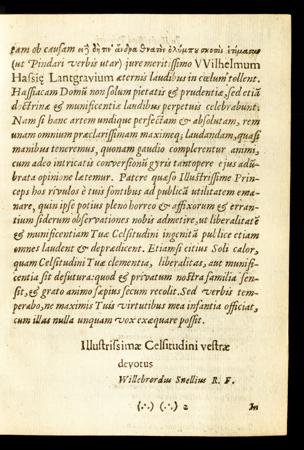 tam ob causam
(ut Pindari verbis utar) jure meritissimo VVilhelmum
Hassię Lantgravium æternis laudibus in cœlum tollent.
Hassiacam Domũ non solum pietatis & prudentiæ, sed etiã
doctrinæ & munificentiæ laudibus perpetuis celebrabunt.
Nam si hanc artem undique perfectam & absolutam, rem
unam omnium præclarissimam maximeq; laudandam, quasi
manibus teneremus, quonam gaudio complerentur animi,
cum adeo intricatis conversionũ gyris tantopere ejus adũ-
brata opinione lætemur. Patere quæso Illustrissime Prin-
ceps hos rivulos è tuis fontibus ad publicã utilitatem ema-
nare, quin ipse potius pleno horreo & affixorum & erran-
tium siderum observationes nobis admetire, ut liberalitatẽ
& munificentiam Tuæ Celsitudini ingenitã publice etiam
omnes laudent & deprædicent. Etiamsi citius Soli calor,
quam Celsitudini Tuæ clementia, liberalitas, aut munifi-
centia sit defutura: quod & privatum nostra familia sen-
sit, & grato animo sæpius secum recolit. Sed verbis tem-
perabo, ne maximis Tuis virtutibus mea infantia officiat,
cum illas nulla unquam vox exæquare possit.
Illustrissimæ Celsitudini vestræ
devotus
Willebrordus Snellius R. F.
(∴) (∴) 2 In